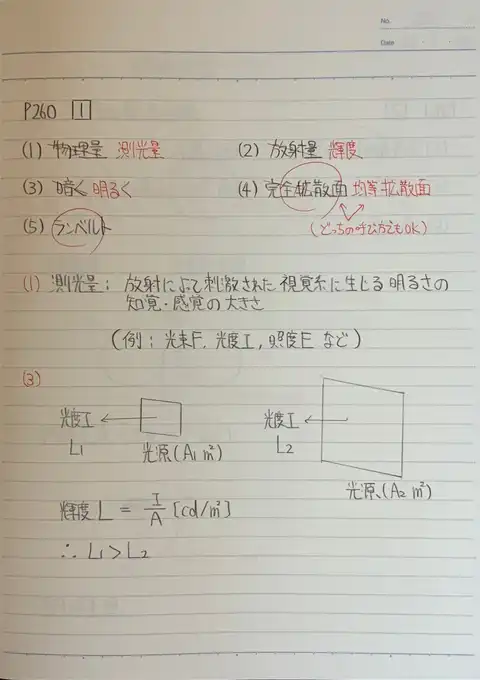 No.
Date
P260 1
(1) 物理量 測光量 (2) 放射量 輝度
(3) 暗く 明るく (4) 完全拡散面 均等拡散面
(5) ランベルト (どっちの呼び方でもOK)
(1) 測光量: 放射によって刺激された視覚系に生じる明るさの
知覚・感覚の大きさ
(例: 光束F, 光度I, 照度E など)
(3)
光度I 光度I
L1 光源(A1 m²) L2
光源(A2 m²)
輝度 L = I/A [cd/m²]
∴ L1 > L2